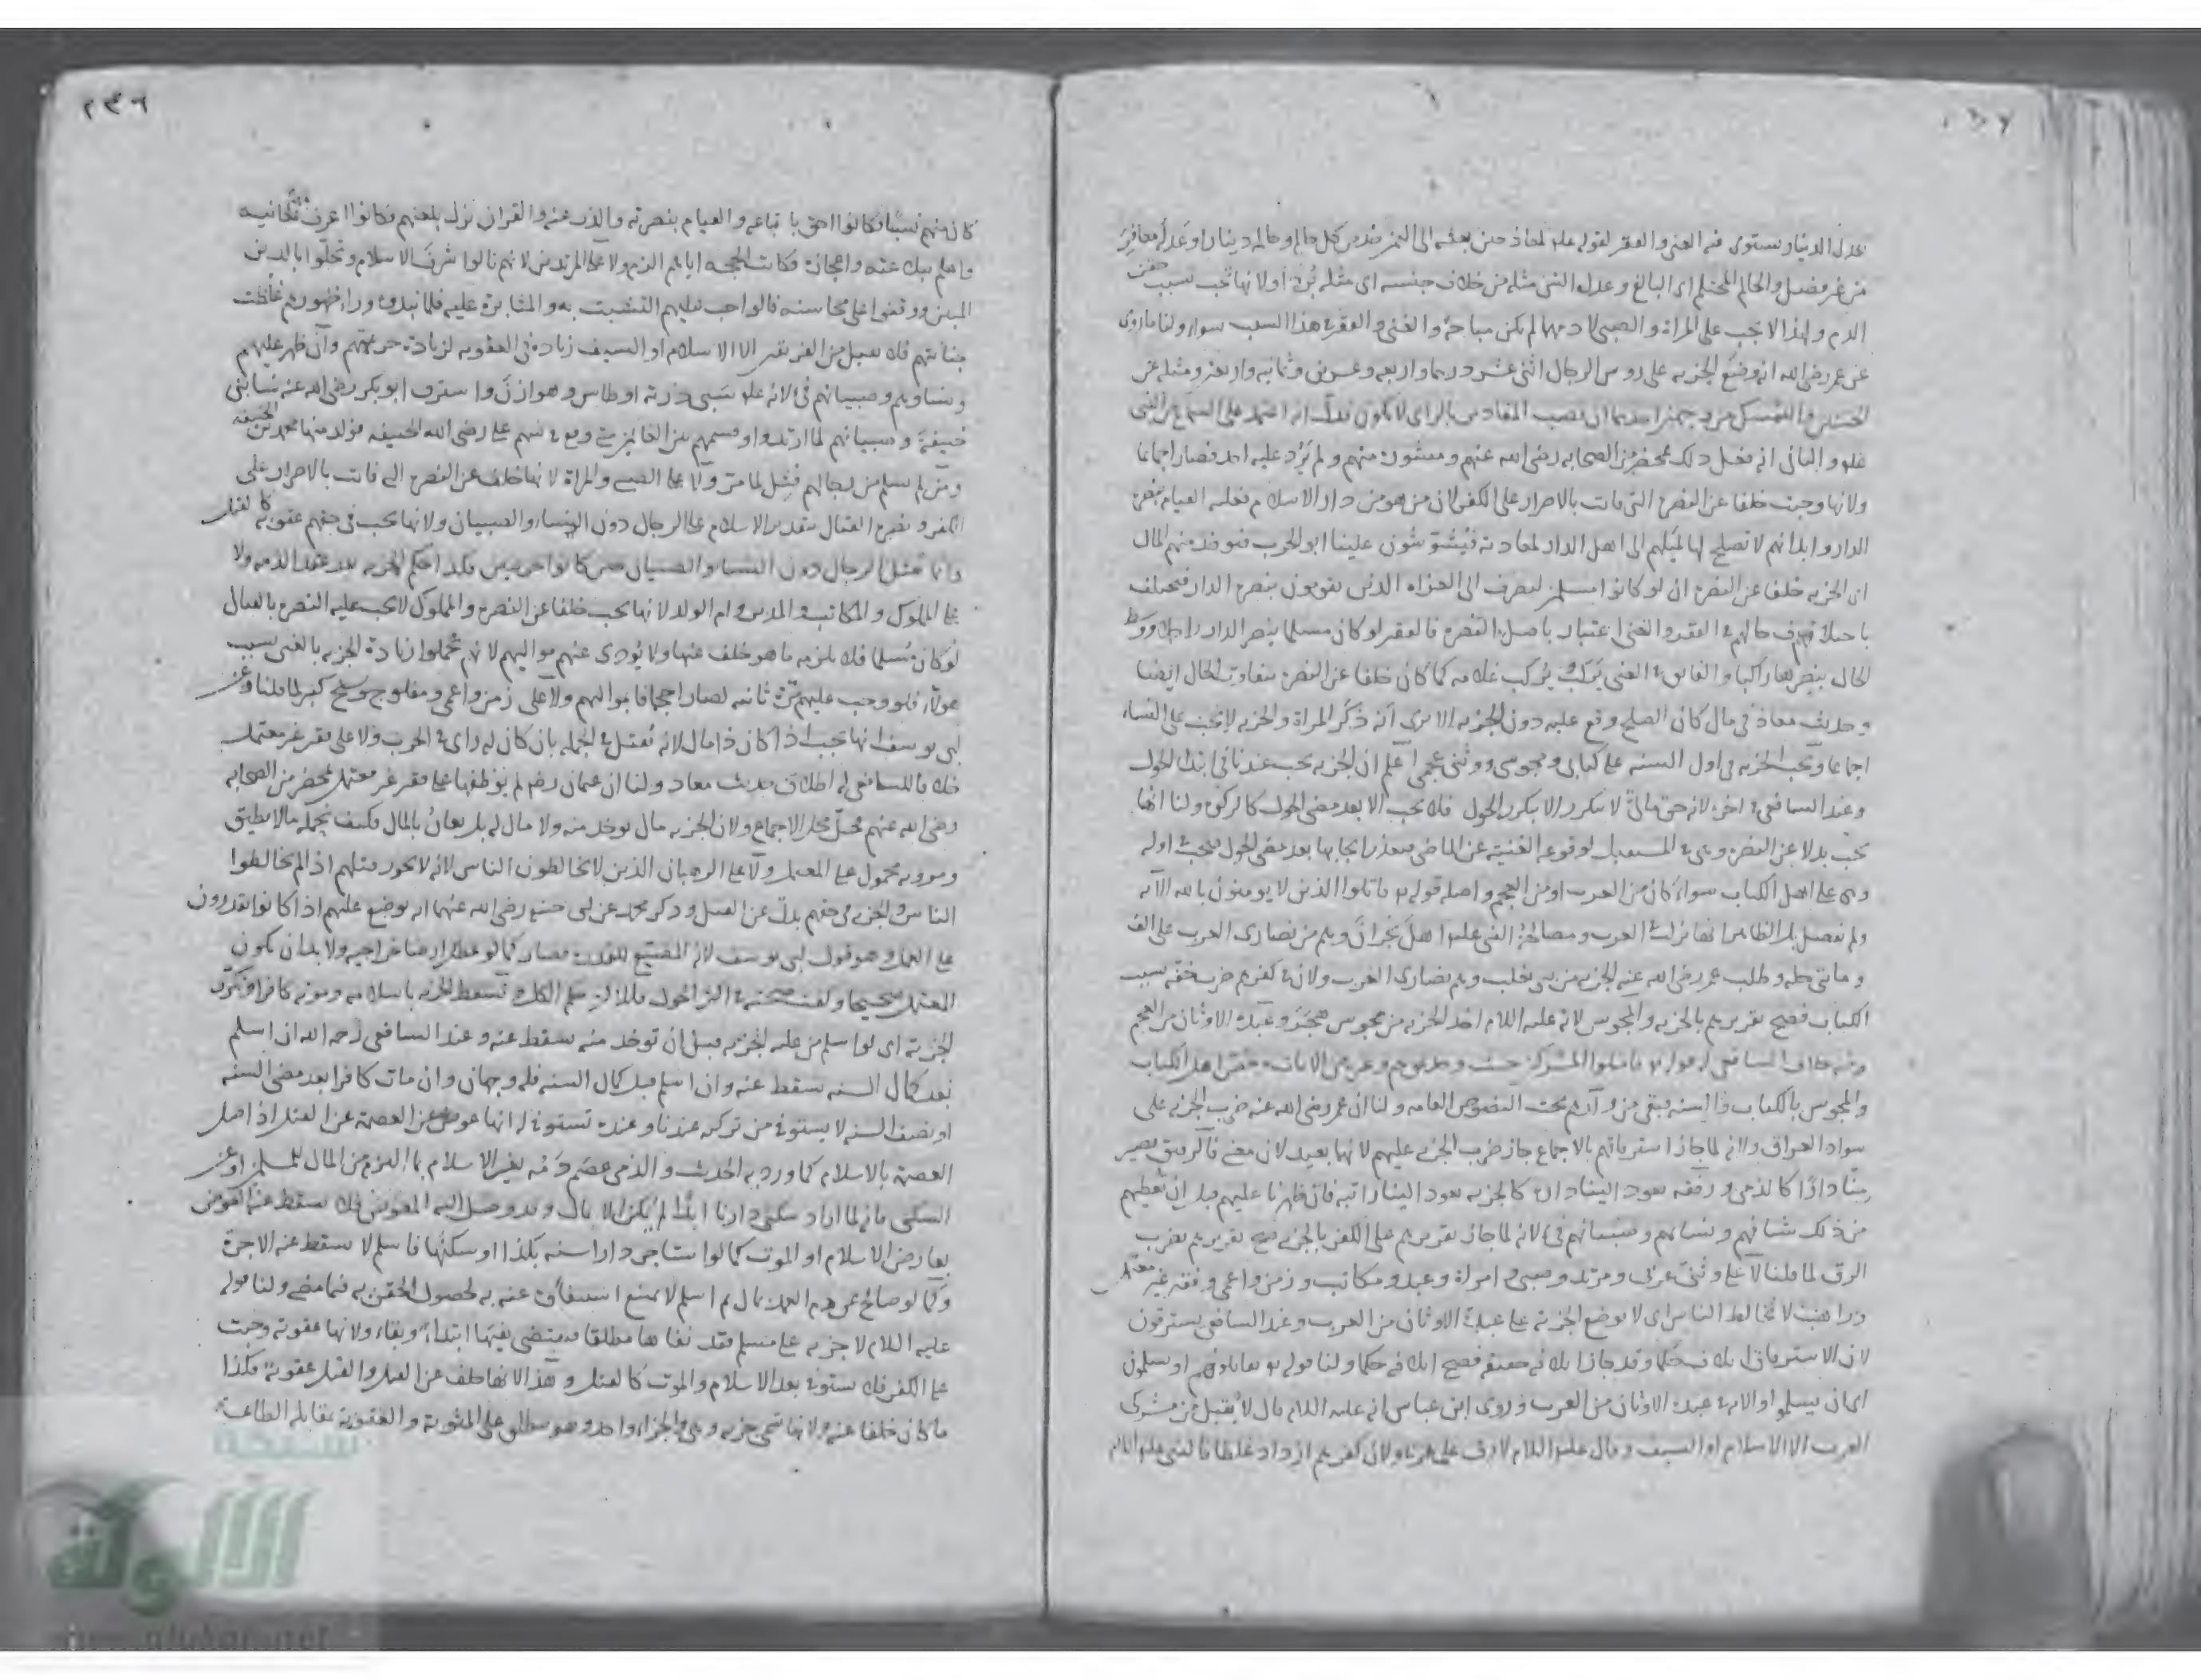 عدل الدينار ويستوى فيه الغنى والفقير لقوله علم لمعاذ حين بعثه الى اليمن خذ من كل حالم وحالمة دينارا او عدله معافر
من غير فصل والحالم المحتلم اى البالغ وعدل الشئ مثله من خلاف جنسه اى مثله بُردا ولانها تجب بسبب حقن
الدم ولهذا لا تجب على المراة والصبى لا دمهما لم يكن مباحا والغنى والفقير فى هذا السبب سواء ولنا ما روى
عن عمر رضى الله انه وضع الجزيه على روس الرجال اثنى عشر درهما واربعه وعشرين وثمانيه واربعين ومثله عن
الحسين والتمسك من وجهين احدهما ان نصب المقادير بالراى لا يكون فدل انه اعتمد على السماع من النبى
علم والثانى انه فعل ذلك بمحضر من الصحابه رضى الله عنهم ومشورة منهم ولم يَرُد عليه احد فصار اجماعا
ولانها وجبت خلفا عن النصرة التى فاتت بالاصرار على الكفر لان من هو من دار الاسلام فعليه القيام بنصرة
الدار وابدانهم لا تصلح لها لميلهم الى اهل الدار لمعادية فيُشوّشون علينا ابو الحرب فيوخذ منهم المال
ان الجزيه خلفا عن النصرة ان لو كانوا مسلمين ليصرف الى الغزاه الذين يقومون بنصرة الدار فيختلف
باختلاف حالهم فى الفقر والغنى اعتبار باصل النصره فالفقير لو كان مسلما ينصر الدار راجلا ووسط
الحال ينصرها راكبا والفايق فى الغنى يَركب ويُركب غلامه كما كان خلفا عن النصرة يتفاوت الحال ايضا
وحديث معاذ فى مال كان الصلح وقع عليه دون الجزيه الا يرى انه ذكر المراة والجزيه لا تجب على النساء
اجماعا وتجب الجزيه فى اول السنه على كتابى ومجوسى ووثنى عجمى اعلم ان الجزيه تجب عندنا فى ابتدا الحول
وعند الشافعى فى اخره لانه حق مالىّ لا يتكرر الا بتكرر الحول فلا تجب الا بعد مضى الحول كالزكوة ولنا انها
تجب بدلا عن النصرة وهى فى المستقبل لوقوع الغنية عن الماضى فتعذر ايجابها بعد مضى الحول فتجب فى اوله
وهى على اهل الكتاب سواء كان من العرب او من العجم واصله قوله تع قاتلوا الذين لا يومنون بالله الآيه
ولم يفصل بل الظاهر انها نزلت فى العرب ومصالحة النبى علم اهل نَجران وهم من نصارى العرب على الف
ومائتى حله وطلب عمر رضى الله عنه الجزيه من بنى تغلب وهم نصارى العرب ولان فى كفرهم ضرب خفه بسبب
الكتاب فصح تقريرهم بالجزيه والمجوس لانه عليه السلام اخذ الجزيه من مجوس هَجَر وعبدة الاوثان من العجم
وفيه خلاف الشافعى له قوله تع فاقتلوا المشركين حيث وجدتموهم وغير من الايات خص اهل الكتاب
والمجوس بالكتاب والسنه بقى من وراءهم تحت النصوص العامه ولنا ان عمر رضى الله عنه ضرب الجزيه على
سواد العراق ولانه لما جاز استرقاقهم بالاجماع جاز ضرب الجزيه عليهم لانها بعيد لان معنى فالرقيق يصير
منّا دارًا كالذمى ورقّه يعود الينا كالجزيه يعود الينا فان ظهرنا عليهم قبل ان نُعطيهم
من ذلك نسائهم وصبيانهم فئ لانه لما جاز تقريرهم على الكفر بالجزيه صح تقريرهم بضرب
الرق لما قلنا لا على وثنىّ عربى ومرتد وصبى وامراة وعبد ومكاتب وزمن واعمى وفقير غير معتمل
وراهب لا يُخالط الناس اى لا توضع الجزيه على عبدة الاوثان من العرب وعند الشافعى يسترقون
لان الاسترقاق اتلاف حُكما وقد جاز اتلافه حقيقة فصح اتلافه حكما ولنا قوله تع تقاتلونهم او يسلمون
اى ان يسلموا والايه فى عبدة الاوثان من العرب وروى ابن عباس انه عليه السلام قال لا يُقبل من مشركى
العرب الا الاسلام او السيف وقال عليه السلام لا رق على عربى ولان كفرهم ازداد غلظا فالنبى عليه السلام
٢٣٦
كان منهم نسبًا فكانوا احق باتباعه والقيام بنصرته والذب عنه والقران نزل بلغتهم فكانوا اعرف بمعانيه
المبين ووقفوا على محاسنه فالواجب عليهم التشبث به والمثابرة عليه فلما نبذوه وراء ظهورهم غلظت
جنايتهم فلا يقبل من الفريقين الا الاسلام او السيف زيادة فى العقوبه لزيادة جريمتهم وان ظهر عليهم
ونساوهم وصبيانهم فئ لانه علم سَبى ذرية اوطاس وهوازن واسترق ابو بكر رضى الله عنه نساء بنى
حنيفة وصبيانهم لما ارتدوا وقسمهم بين الغانمين حتى وقع فى سهم على رضى الله الحنيفه فولد منها محمد بن الحنيفه
ومن لم يسلم من رجالهم قتل لما مر ولا على الصبى والمراة لانها خلف عن النصرة التى فاتت بالاصرار على
الكفر ونصرة القتال بتقدير الاسلام على الرجال دون النساء والصبيان ولانها تجب فى حقهم عقوبة كالقتل
وانما يقتل الرجال دون النساء والصبيان حين كانوا حربيين فكذا حكم الجزيه بعد عقد الذمه ولا
على المملوك والمكاتب والمدبر وام الولد لانها تجب خلفا عن النصرة والمملوك لا يجب عليه النصرة بالقتال
لو كان مُسلما فلا يلزمه ما هو خلف عنها ولا يُودى عنهم مواليهم لانهم تحملوا زيادة الجزيه بالغنى بسبب
هولاء فلو وجب عليهم مرّة ثانيه لصار اجحافا بمواليهم ولا على زمن واعمى ومفلوج وشيخ كبير لما قلنا وعن
ابى يوسف انها تجب اذا كان ذا مال لانه يُقتل فى الجمله بان كان له راى فى الحرب ولا على فقير غير معتمل
خلافا للشافعى له اطلاق حديث معاذ ولنا ان عثمان رضى لم يوظفها على فقير غير معتمل بمحضر من الصحابه
رضى الله عنهم فحلّ محل الاجماع ولان الجزيه مال يوخذ منه ولا مال له بل يعانُ بالمال فكيف يُحمله مالا يطيق
ومرويه محمول على المعتمل ولا على الرهبان الذين لا يخالطون الناس لانه لا يجوز قتلهم اذا لم يخالطوا
الناس والجزيه فى حقهم بدل عن القتل وذكر محمد عن ابى حنيفة رضى الله عنهما انه يوضع عليهم اذا كانوا يقدرون
على العمل وهو قول ابى يوسف لانه المضيع للقدرة فصار كما لو عطل ارضا خراجيه ولا بد ان يكون
المعتمل صحيحا ويكفى صحته فى اكثر الحول وتسقط الجزيه باسلامه وموته كافرا وتكرر
الجزية اى لو اسلم من عليه الجزيه قبل ان توخذ منه يسقط عنه وعند الشافعى رحمه الله ان اسلم
بعد كمال السنه يسقط عنه وان اسلم قبل كمال السنه فله وجهان وان مات كافرا بعد مضى السنه
او نصف السنه لا يستوفى من تركته عندنا وعنده تستوفى له انها عوض عن العصمة عن القتل اذ اصل
العصمة بالاسلام كما ورد به الحديث والذمى عصم دمه بغير الاسلام بما التزم من المال للمسلمين او عن
السكنى فانه لما اراد سكنى دارنا ابدًا لم يُمكن الا بمال وقد وصل اليه المعوض فلا يسقط عنه العوض
بعارض الاسلام او الموت كما لو استاجر دارا سنه بكذا او سكنها فاسلم لا يسقط عنه الاجرة
وكما لو صالح عن دم العمد بمال ثم اسلم لا يمنع استيفاؤه عنه لحصول الحقن به فيما مضى ولنا قوله
عليه السلام لا جزيه على مسلم فقد نفاها مطلقا فيقتضى نفيها ابتداء وبقاء ولانها عقوبة وجبت
على الكفر فلا يستوفى بعد الاسلام والموت كالقتل وهذا لانها خلف عن القتل والقتل عقوبة فكذا
ما كان خلفا عنه ولانها تسمى جزيه وهى والجزاء واحد وهو يطلق على المثوبة والعقوبة بمقابلة الطاعة
شبكة
الألوكة
www.alukah.net